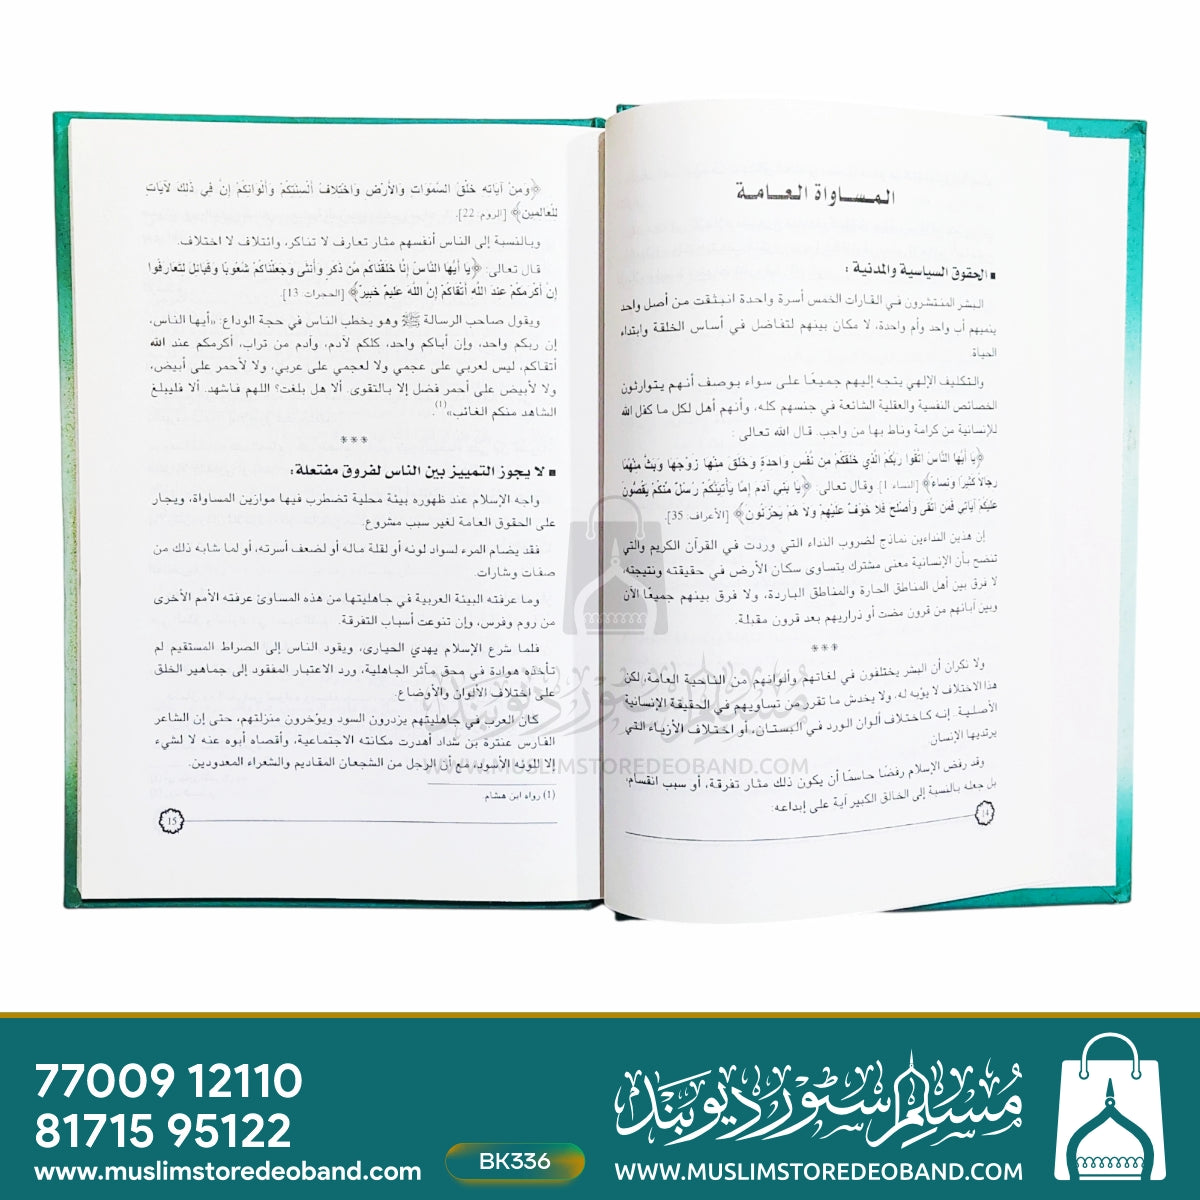 المساواة العامة
▪ الحقوق السياسية والمدنية :
البشر المنتشرون في القارات الخمس أسرة واحدة انبثقت من أصل واحد
ينميهم أب واحد وأم واحدة، لا مكان بينهم لتفاضل في أساس الخلقة وابتداء
الحياة
والتكليف الإلهي يتجه إليهم جميعًا على سواء بوصف أنهم يتوارثون
الخصائص النفسية والعقلية الشائعة في جنسهم كله، وأنهم أهل لكل ما كفل الله
للإنسانية من كرامة وناط بها من واجب. قال الله تعالى :
﴿يَا أَيُّهَا النَّاسُ اتَّقُوا رَبَّكُمُ الَّذِي خَلَقَكُمْ مِنْ نَفْسٍ وَاحِدَةٍ وَخَلَقَ مِنْهَا زَوْجَهَا وَبَثَّ مِنْهُمَا
رِجَالًا كَثِيرًا وَنِسَاءً﴾ [النساء 1]. وقال تعالى: ﴿يَا بَنِي آدَمَ إِمَّا يَأْتِيَنَّكُمْ رُسُلٌ مِنْكُمْ يَقُصُّونَ
عَلَيْكُمْ آيَاتِي فَمَنِ اتَّقَى وَأَصْلَحَ فَلَا خَوْفٌ عَلَيْهِمْ وَلَا هُمْ يَحْزَنُونَ﴾ [الأعراف: 35].
إن هذين النداءين نماذج لضروب النداء التي وردت في القرآن الكريم والتي
تنضح بأن الإنسانية معنى مشترك يتساوى سكان الأرض في حقيقته ونتيجته،
لا فرق بين أهل المناطق الحارة والمناطق الباردة، ولا فرق بينهم جميعًا الآن
وبين آبائهم من قرون مضت أو ذراريهم بعد قرون مقبلة.
***
ولا نكران أن البشر يختلفون في لغاتهم وألوانهم من الناحية العامة، لكن
هذا الاختلاف لا يؤبه له، ولا يخدش ما تقرر من تساويهم في الحقيقة الإنسانية
الأصلية. إنه كاختلاف ألوان الورد في البستان، أو اختلاف الأزياء التي
يرتديها الإنسان.
وقد رفض الإسلام رفضًا حاسمًا أن يكون ذلك مثار تفرقة، أو سبب انقسام،
بل جعله بالنسبة إلى الخالق الكبير آية على إبداعه:
14
﴿وَمِنْ آيَاتِهِ خَلْقُ السَّمَوَاتِ وَالأَرْضِ وَاخْتِلَافُ أَلْسِنَتِكُمْ وَأَلْوَانِكُمْ إِنَّ فِي ذَلِكَ لَآيَاتٍ
لِلْعَالِمِينَ﴾ [الروم: 22].
وبالنسبة إلى الناس أنفسهم مثار تعارف لا تناكر، وائتلاف لا اختلاف.
قال تعالى: ﴿يَا أَيُّهَا النَّاسُ إِنَّا خَلَقْنَاكُمْ مِنْ ذَكَرٍ وَأُنْثَى وَجَعَلْنَاكُمْ شُعُوبًا وَقَبَائِلَ لِتَعَارَفُوا
إِنَّ أَكْرَمَكُمْ عِنْدَ اللَّهِ أَتْقَاكُمْ إِنَّ اللَّهَ عَلِيمٌ خَبِيرٌ﴾ [الحجرات: 13].
ويقول صاحب الرسالة ﷺ وهو يخطب الناس في حجة الوداع: «أيها الناس،
إن ربكم واحد، وإن أباكم واحد، كلكم لآدم، وآدم من تراب، أكرمكم عند الله
أتقاكم، ليس لعربي على عجمي ولا لعجمي على عربي، ولا لأحمر على أبيض،
ولا لأبيض على أحمر فضل إلا بالتقوى. ألا هل بلغت؟ اللهم فاشهد. ألا فليبلغ
الشاهد منكم الغائب»(1).
***
▪ لا يجوز التمييز بين الناس لفروق مفتعلة:
واجه الإسلام عند ظهوره بيئة محلية تضطرب فيها موازين المساواة، ويجار
على الحقوق العامة لغير سبب مشروع.
فقد يضام المرء لسواد لونه أو لقلة ماله أو لضعف أسرته، أو لما شابه ذلك من
صفات وشارات.
وما عرفته البيئة العربية في جاهليتها من هذه المساوئ عرفته الأمم الأخرى
من روم وفرس، وإن تنوعت أسباب التفرقة.
فلما شرع الإسلام يهدي الحيارى، ويقود الناس إلى الصراط المستقيم لم
تأخذه هوادة في محق مآثر الجاهلية، ورد الاعتبار المفقود إلى جماهير الخلق
على اختلاف الألوان والأوضاع.
كان العرب في جاهليتهم يزدرون السود ويؤخرون منزلتهم، حتى إن الشاعر
الفارس عنترة بن شداد أهدرت مكانته الاجتماعية، وأقصاه أبوه عنه لا لشيء
إلا للونه الأسود، مع أن الرجل من الشجعان المقاديم والشعراء المعدودين.
(1) رواه ابن هشام
15
مسلم سٹور دیوبند
WWW.MUSLIMSTOREDEOBAND.COM
77009 12110
81715 95122
www.muslimstoredeoband.com
BK336
مسلم سٹور دیوبند
WWW.MUSLIMSTOREDEOBAND.COM